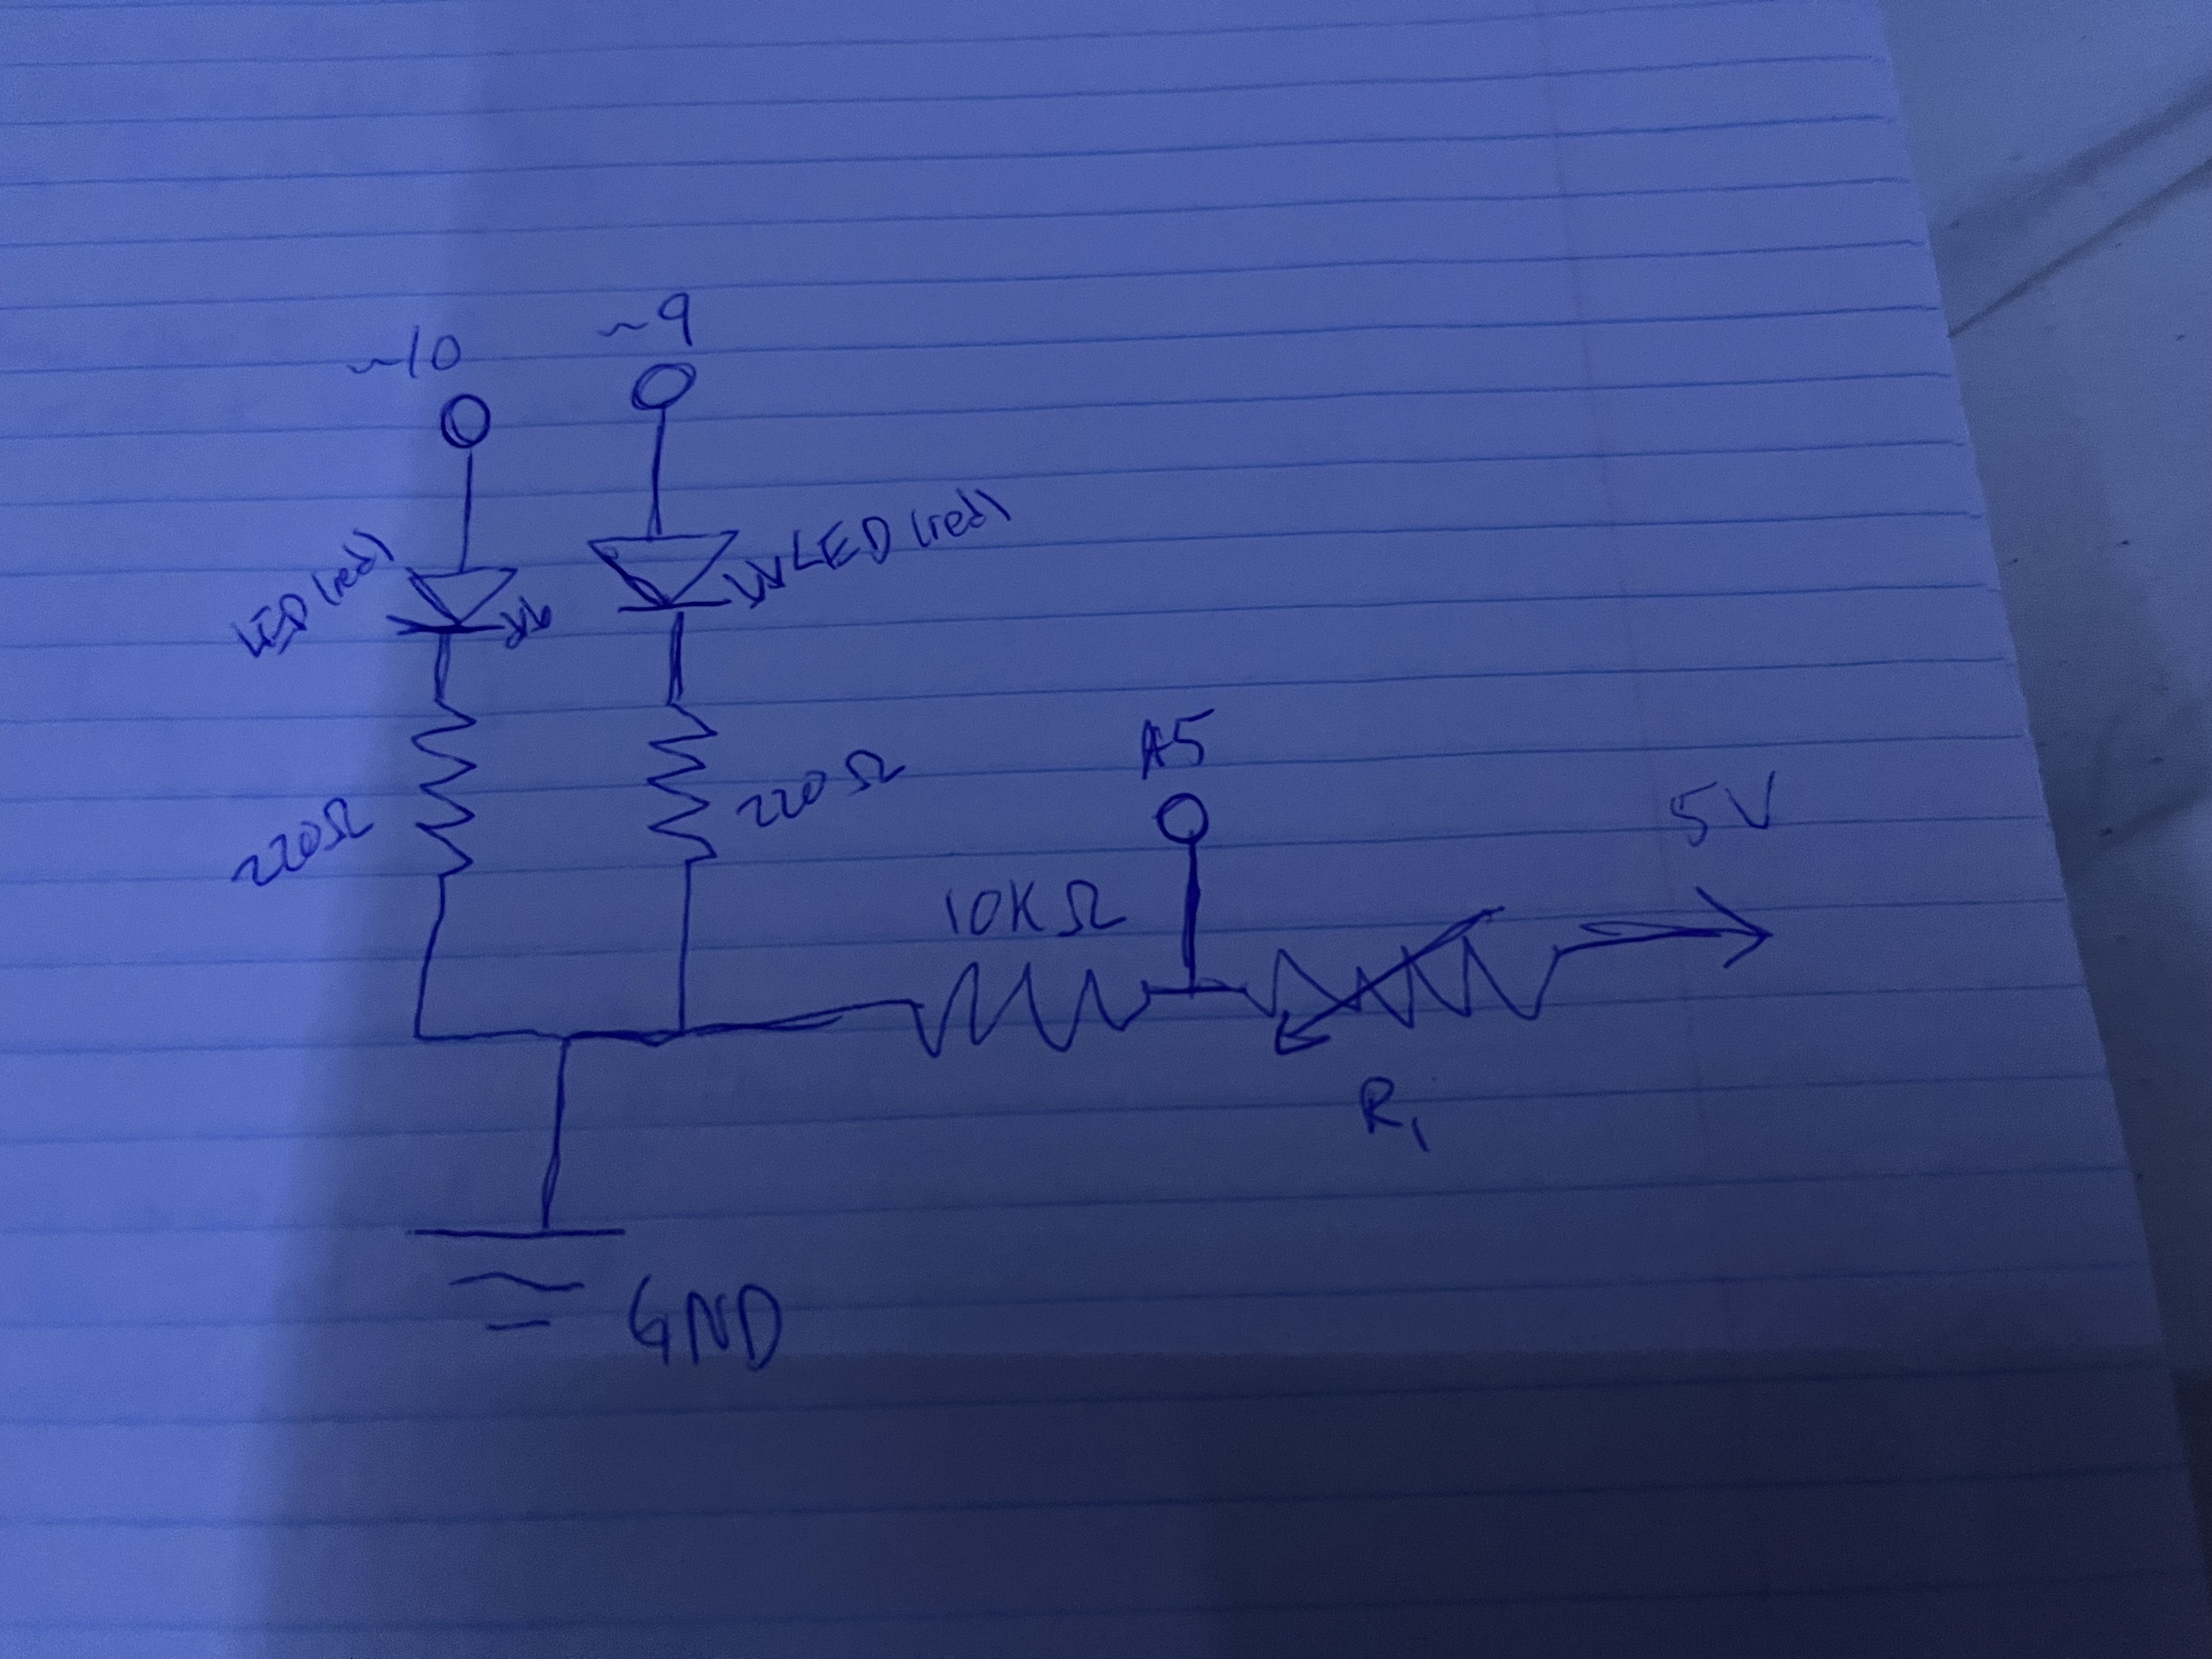 ~10
~9
LED (red)
LED (red)
220Ω
220Ω
A5
5V
10KΩ
R₁
GND